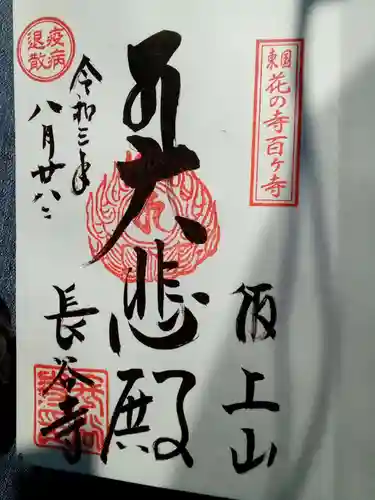 東国
花の寺百ヶ寺
飯上山
大悲殿
長谷寺
令和三年
八月廿八日
疫病
退散